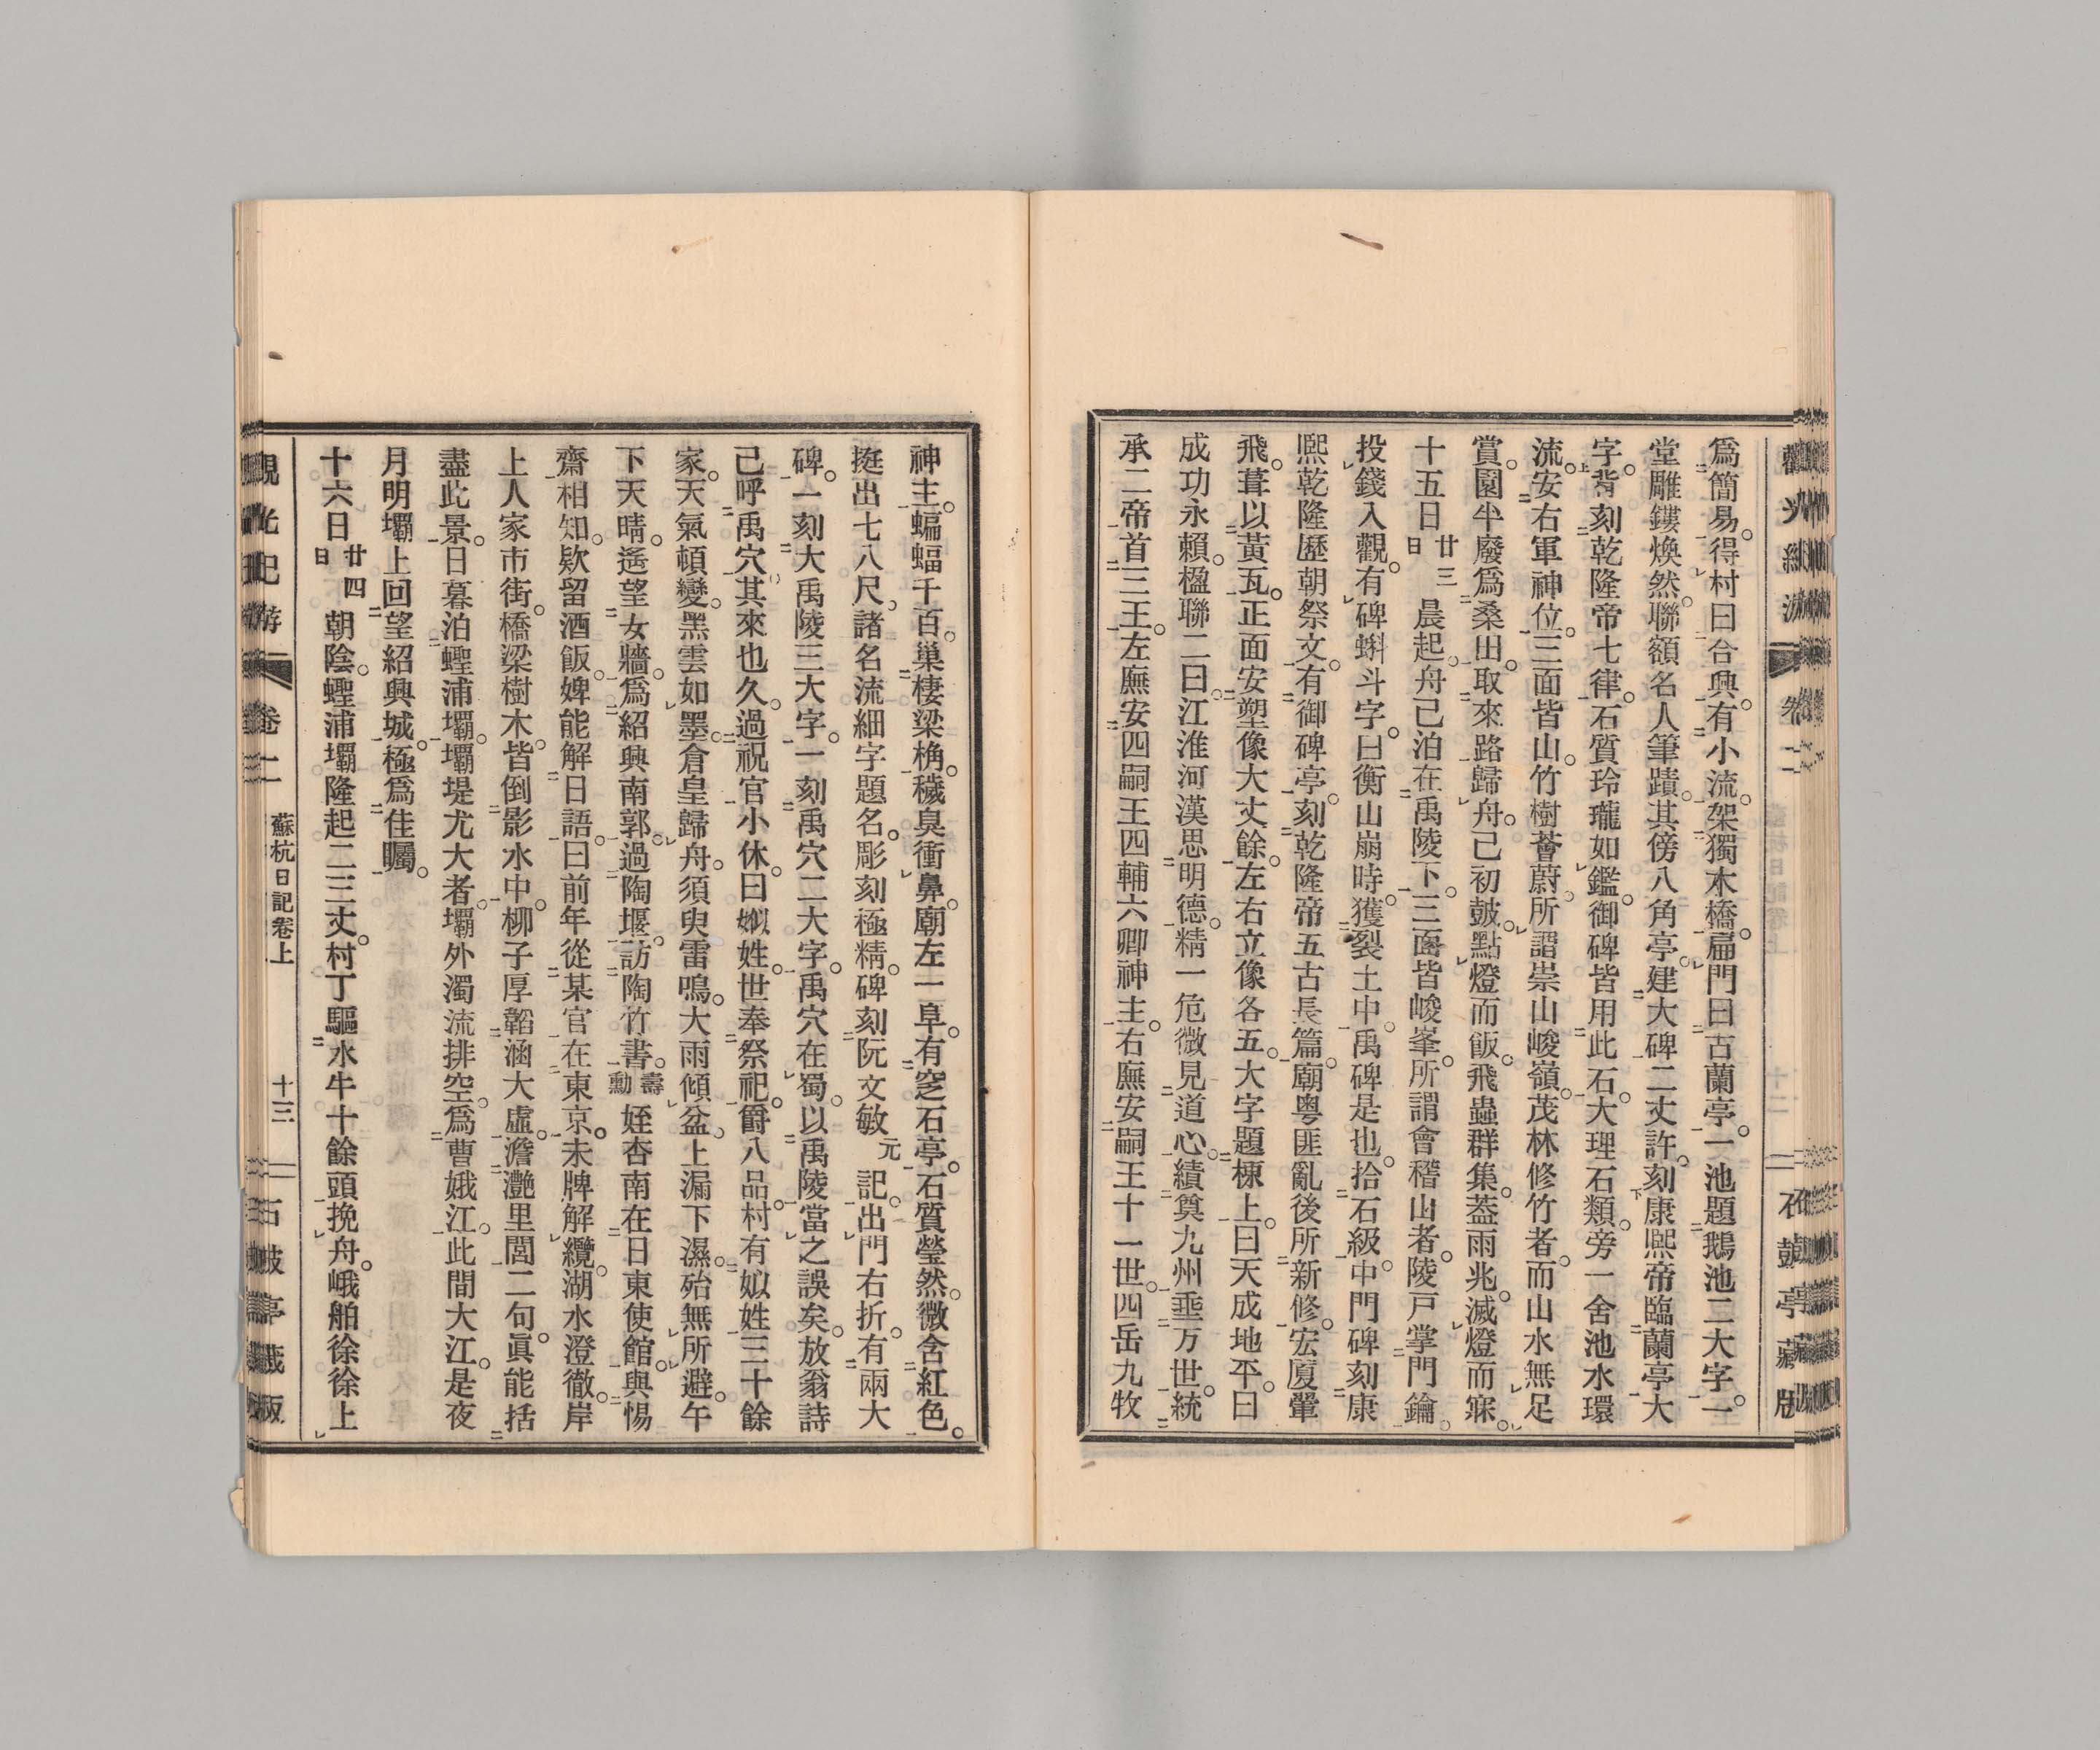 爲簡易。得村曰合興。有小流。架獨木橋。扁門曰古蘭亭。一池題鵝池二大字。一
堂雕鏤煥然。聯額名人筆蹟。其傍八角亭。建大碑二丈許。刻康熙帝臨蘭亭大
字。背刻乾隆帝七律。石質玲瓏如鑑。御碑皆用此石。大理石類。旁一舍池水環
流。安右軍神位。三面皆山。竹樹薈蔚。所謂崇山峻嶺。茂林修竹者。而山水無足
賞。園半廢爲桑田。取來路歸舟。已初皷。點燈而飯。飛蟲群集。葢雨兆。滅燈而寐。
十五日廿三日晨起。舟已泊在禹陵下。三面皆峻峯。所謂會稽山者。陵戸掌門鑰。
投錢入觀。有碑蝌斗字。曰衡山崩時。獲裂土中。禹碑是也。拾石級。中門碑刻康
熙乾隆歷朝祭文。有御碑亭。刻乾隆帝五古長篇。廟粤匪亂後所新修。宏厦翬
飛。葺以黃瓦。正面安塑像大丈餘。左右立像各五。大字題棟上。曰天成地平。曰
成功永賴。楹聯二曰。江淮河漢思明德。精一危微見道心。績奠九州垂万世。統
承二帝首三王。左廡安四嗣王四輔六卿神主。右廡安嗣王十一世。四岳九牧
神主。蝙蝠千百。巢棲梁桷。穢臭衝鼻。廟左一阜。有窆石亭。石質瑩然。微含紅色。
挺出七八尺。諸名流細字題名。彫刻極精。碑刻阮文敏元記。出門右折。有兩大
碑。一刻大禹陵三大字。一刻禹穴二大字。禹穴在蜀。以禹陵當之誤矣。放翁詩
己呼禹穴。其來也久。過祝官小休。曰姒姓。世奉祭祀。爵八品。村有姒姓三十餘
家。天氣頓變。黑雲如墨。倉皇歸舟。須臾雷鳴。大雨傾盆。上漏下濕。殆無所避。午
下天晴。遙望女牆。爲紹興南郭。過陶堰。訪陶竹書。壽勳姪杏南在日東使館。與惕
齋相知。欵留酒飯。婢能解日語。曰前年從某官在東京。未牌解纜。湖水澄徹。岸
上人家市街。橋梁樹木。皆倒影水中。柳子厚韜涵大虛。澹灔里閭二句。眞能括
盡此景。日暮泊蟶浦壩。壩堤尤大者。壩外濁流排空。爲曹娥江。此間大江。是夜
月明壩上回望紹興城。極爲佳矚。
十六日廿四日朝陰。蟶浦壩隆起二三丈。村丁驅水牛十餘頭挽舟。峨舶徐徐上
觀光紀游 卷二 蘇杭日記卷上 十三 石鼓亭藏版